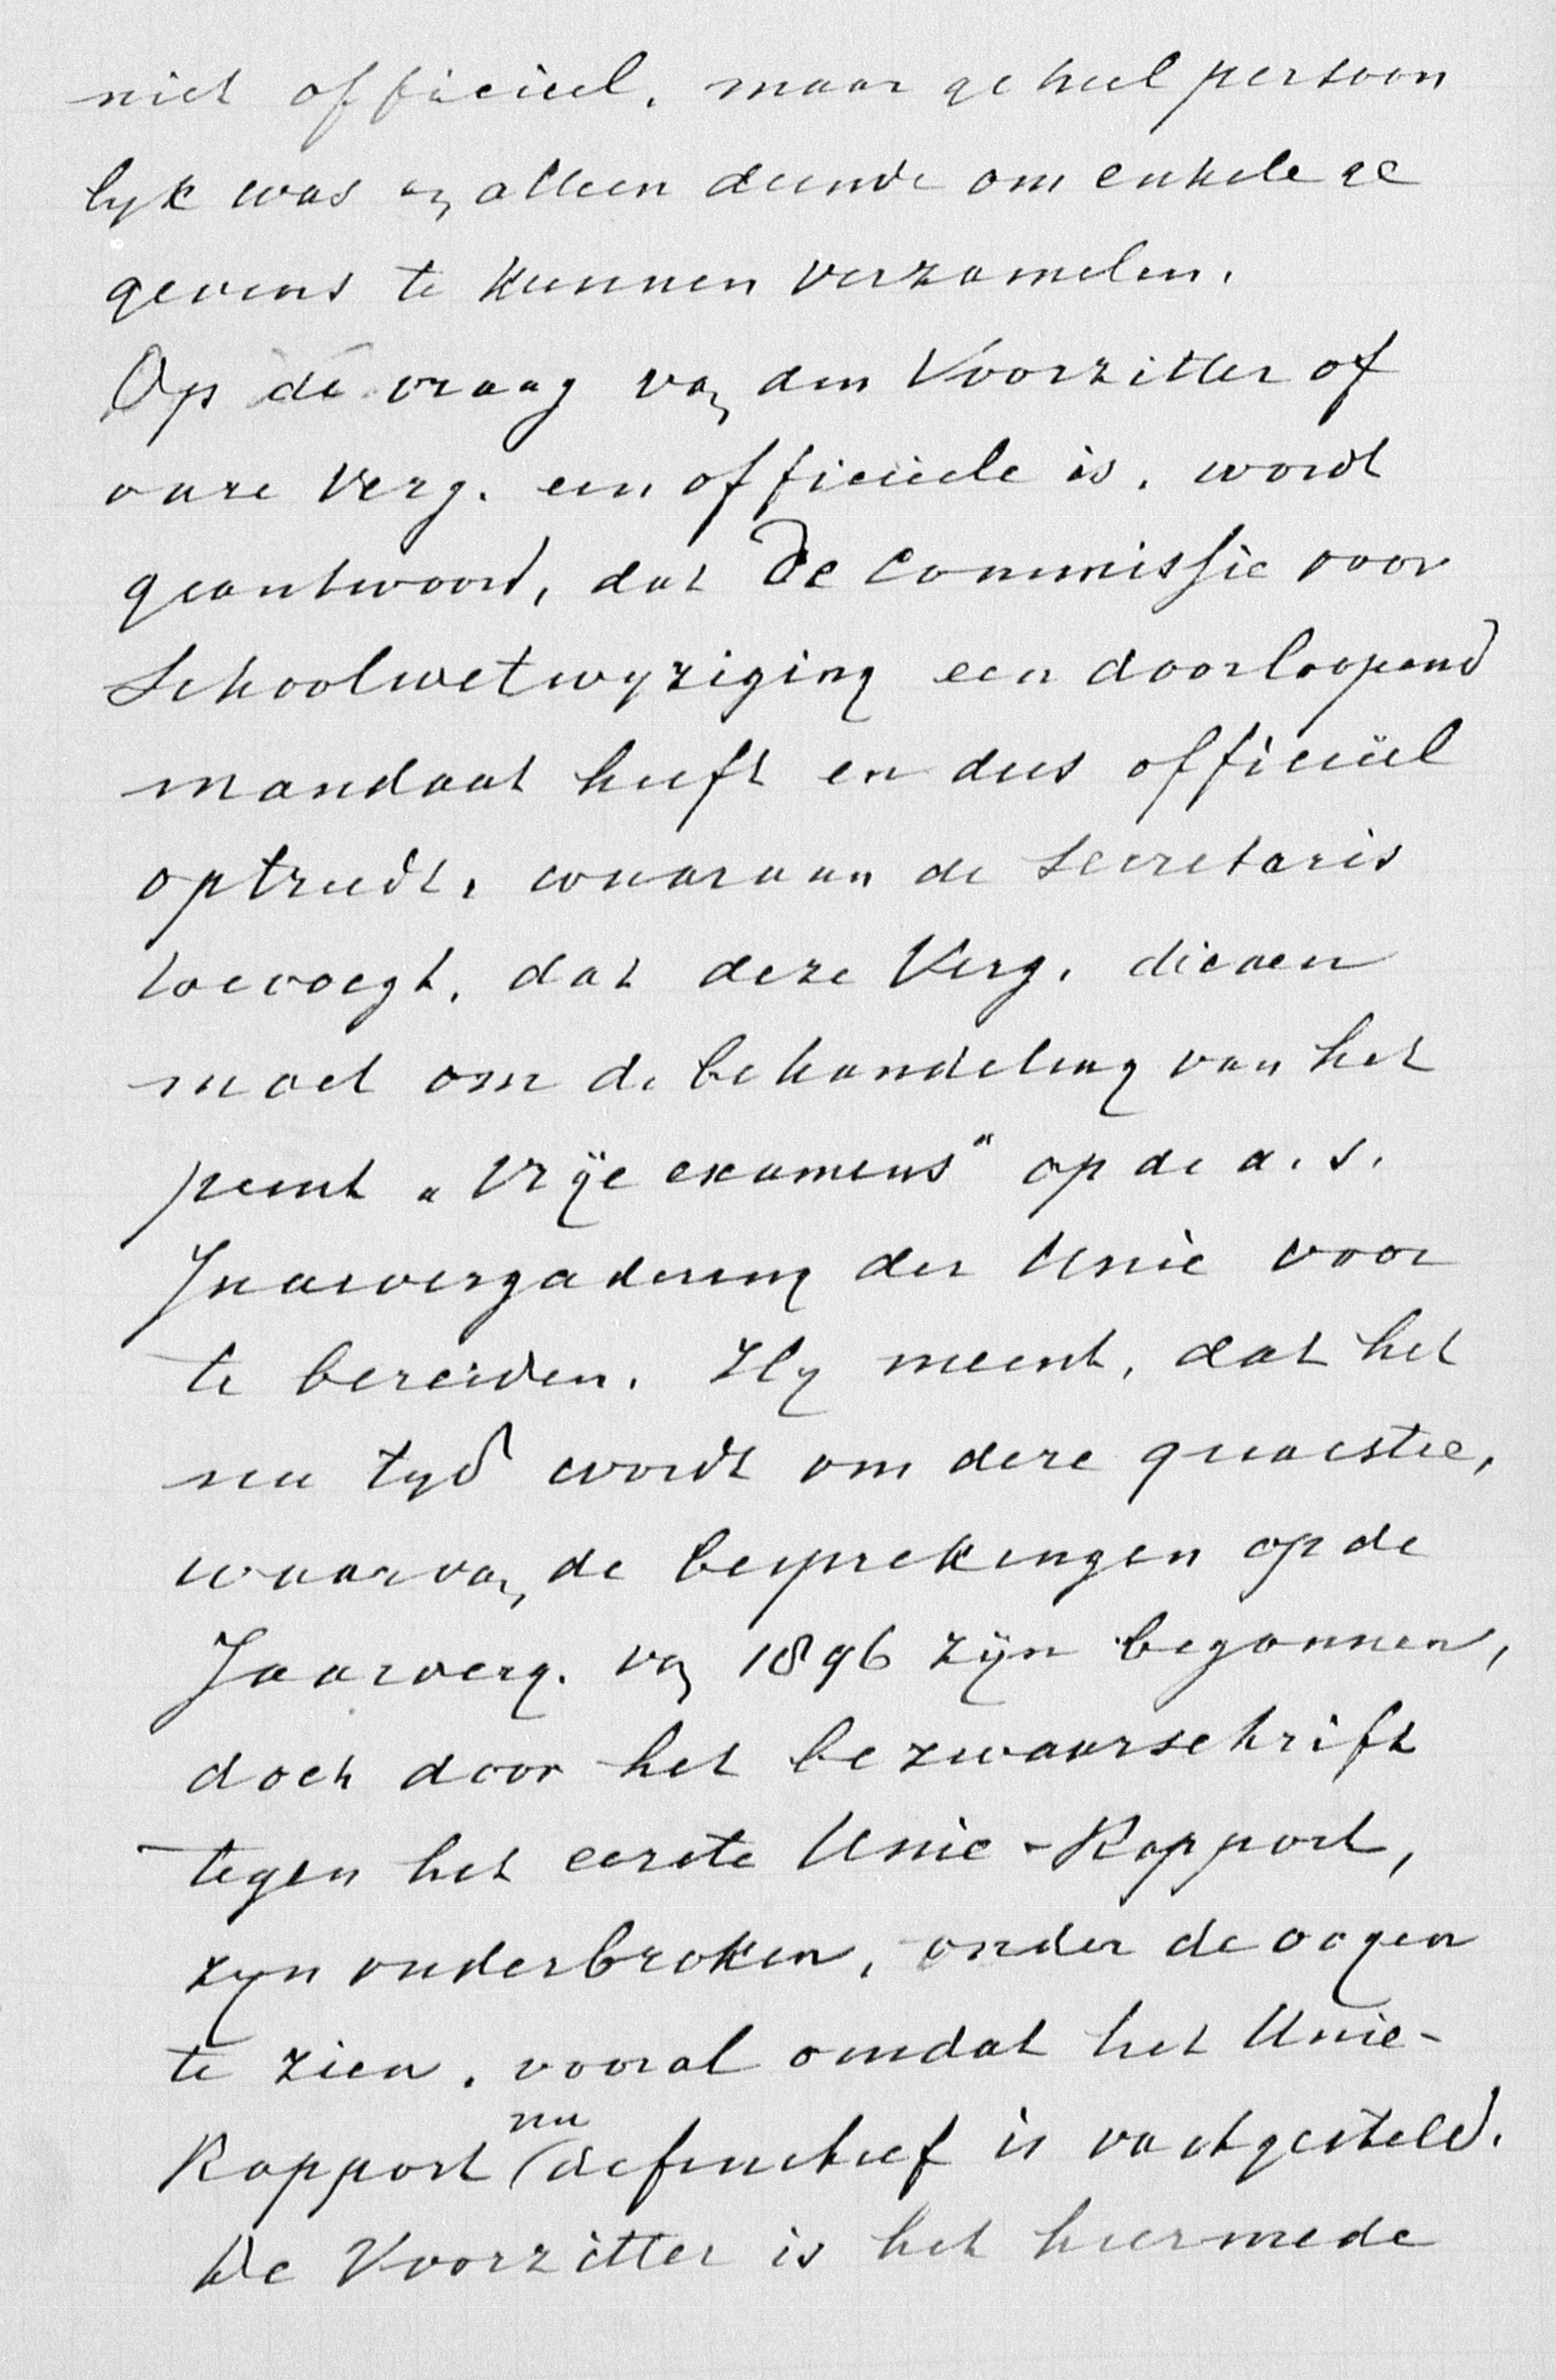 niet officieel, maar geheel persoon
lyk was en alleen diende om enkele ge
gevens te kunnen verzamelen.
Op de vraag van den Voorzitter of
onze Verg. een officieele is, wordt
geantwoord, dat De Commissie voor
Schoolwetwyziging een doorloopend
mandaat heeft en dus officieel
optreedt, waaraan de Secretaris
toevoegt, dat deze Verg. dienen
moet om de behandeling van het
punt „Vrije examens" op de a.s.
Jaarvergadering der Unie voor
te bereiden. Hy meent, dat het
nu tyd wordt om deze quaestie,
waarvan de besprekingen op de
Jaarverg. van 1896 zijn begonnen,
doch door het bezwaarschrift
tegen het eerste Unie-Rapport,
zyn onderbroken, onder de oogen
te zien, vooral omdat het Unie-
Rapport nu definitief is vastgesteld.
De Voorzitter is het hiermede